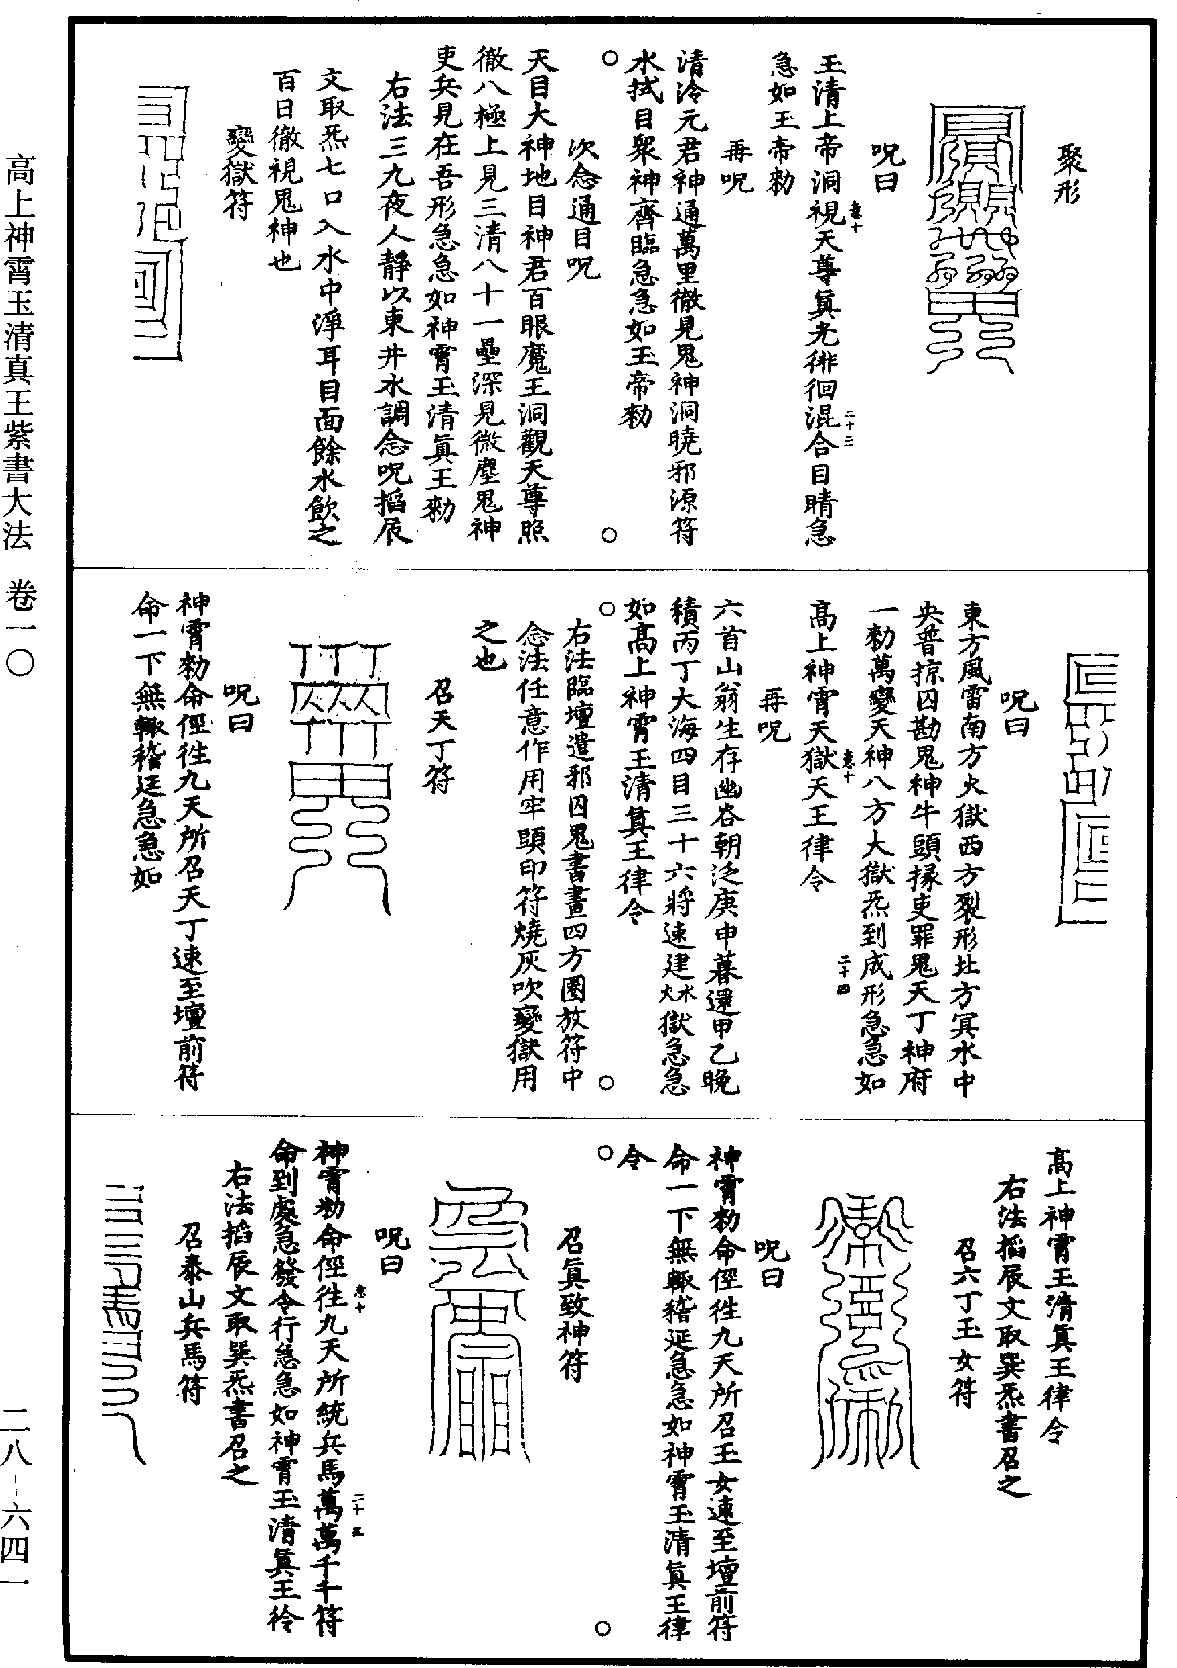 聚形
呪曰
玉清上帝洞視天尊眞光徘徊混合目睛急
卷十
二十三
急如玉帝勑
再呪
清泠元君神通萬里徹見鬼神洞曉邪源符
水拭目衆神齊臨急急如玉帝勑
次念通目呪
天目大神地目神君百眼魔王洞觀天尊照
徹八極上見三清八十一壘深見微塵鬼神
吏兵見在吾形急急如神霄玉清眞王勑
右法三九夜人靜以東井水調念呪搯辰
文取炁七口入水中淨耳目面餘水飲之
百日徹視鬼神也
變獄符
呪曰
東方風雷南方火獄西方裂形北方冥水中
央普掠囚勘鬼神牛頭掾吏罪鬼天丁神府
一勑萬變天神八方大獄炁到成形急急如
卷十
二十四
高上神霄天獄天王律令
再呪
六首山翁生存幽谷朝泛庚申暮還甲乙晚
積丙丁大海四目三十六將速建水火獄急急
如高上神霄玉清眞王律令
右法臨壇遣邪囚鬼書畫四方圈放符中
念法任意作用牢頭印符燒灰吹變獄用
之也
召天丁符
呪曰
神霄勑命徑往九天所召天丁速至壇前符
命一下無輙稽延急急如
高上神霄玉清眞王律令
右法搯辰文取巽炁書召之
召六丁玉女符
呪曰
神霄勑命徑往九天所召玉女速至壇前符
命一下無輙稽延急急如神霄玉清眞王律
令
召眞致神符
呪曰
神霄勑命徑往九天所統兵馬萬萬千千符
卷十
二十五
命到處急發令行急急如神霄玉清眞王符
右法搯辰文取巽炁書召之
召泰山兵馬符
高上神霄玉清真王紫書大法 卷一〇
二八-六四一